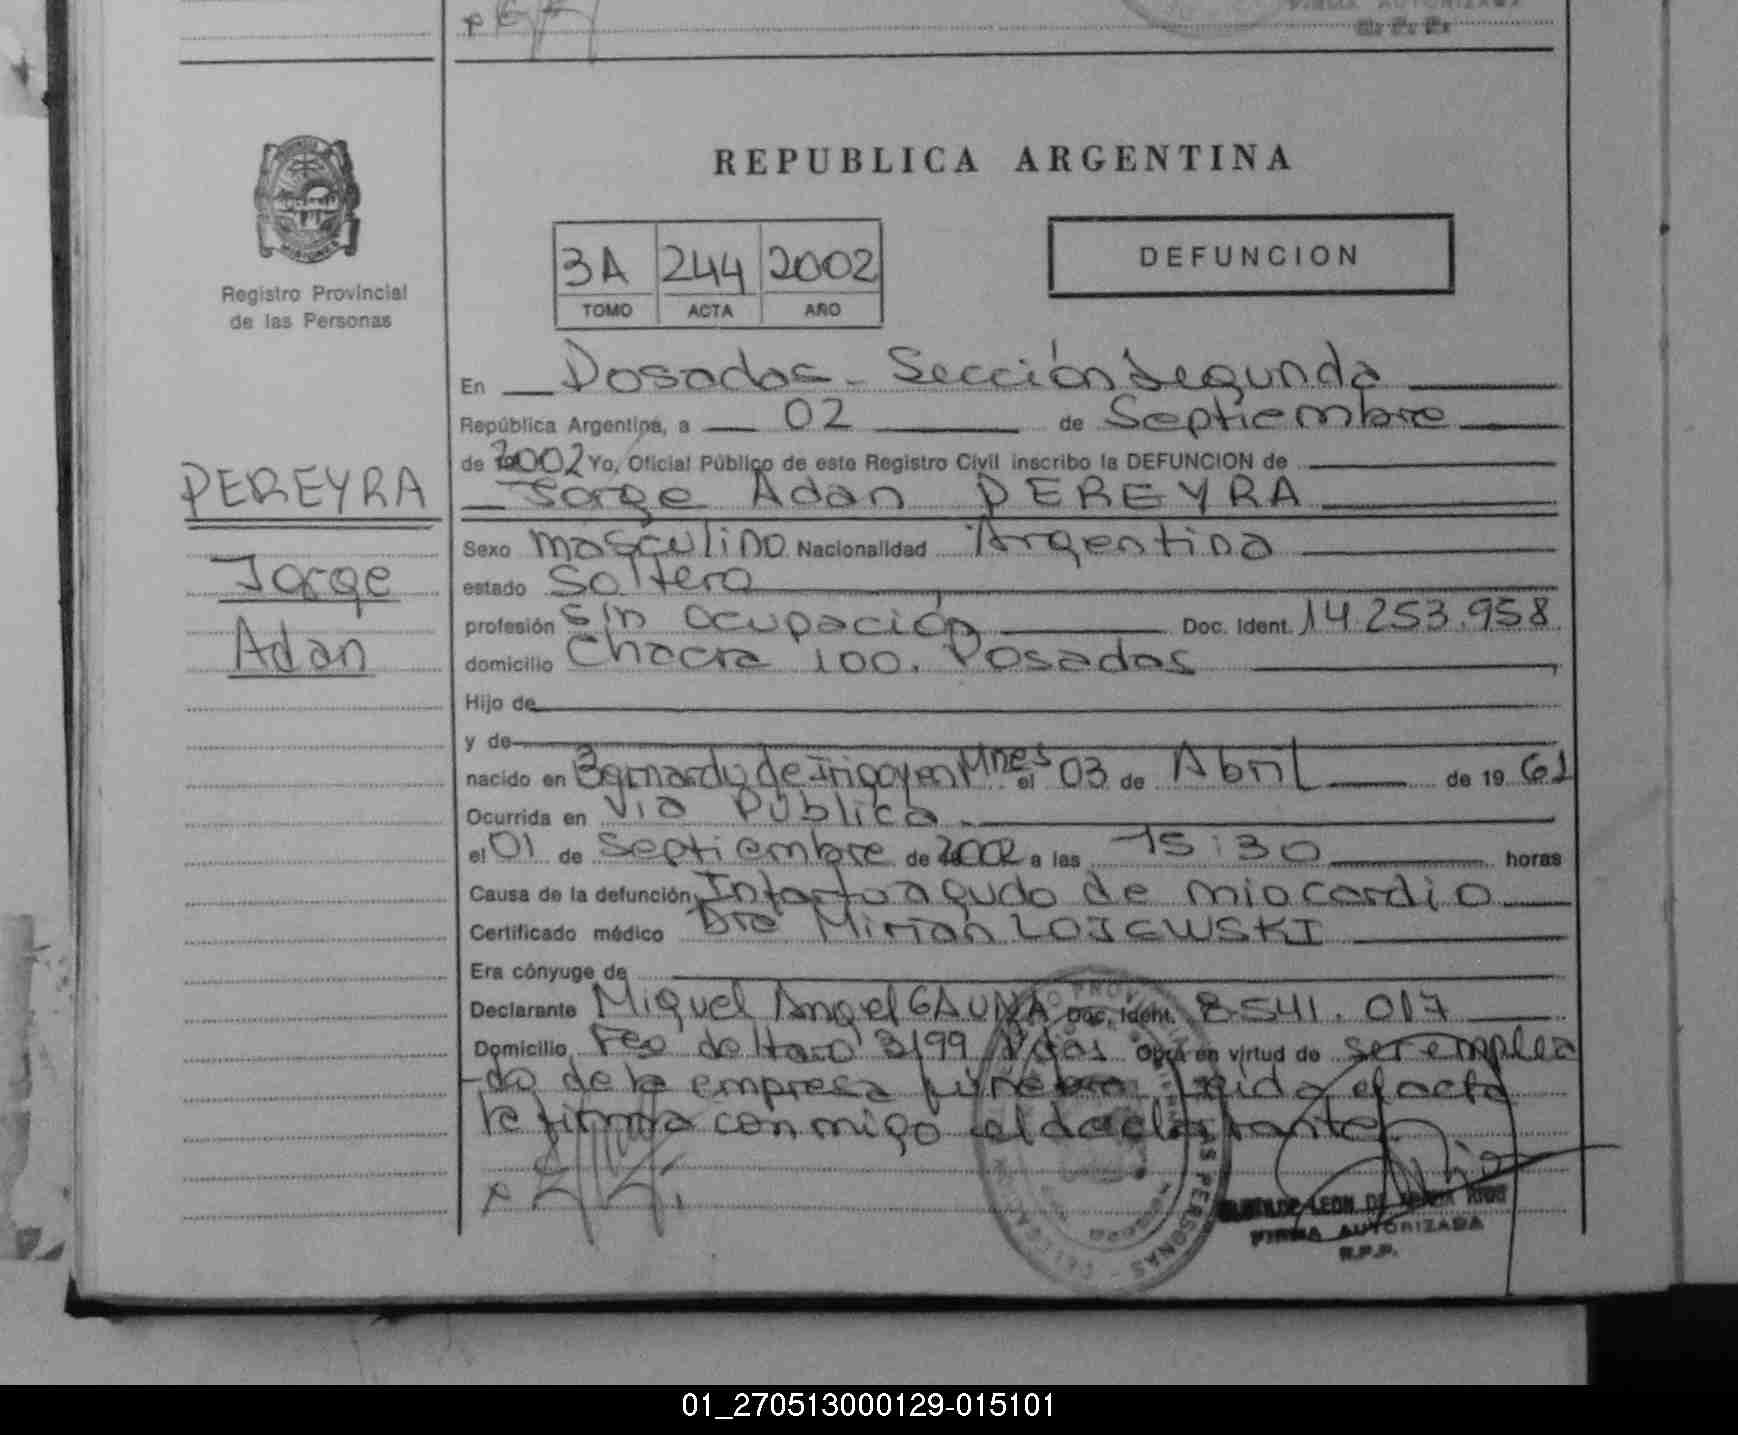 FIRMA AUTORIZADA
R. P. P.
REPUBLICA ARGENTINA
Registro Provincial
de las Personas
3A 244 2002
TOMO ACTA AÑO
DEFUNCION
En Posadas - Sección Segunda
República Argentina, a 02 de Septiembre
de 2002 Yo, Oficial Público de este Registro Civil inscribo la DEFUNCION de
PEREYRA
Jorge Adan PEREYRA
Sexo masculino Nacionalidad Argentina
Jorge
estado soltero
profesión sin ocupación Doc. Ident. 14.253.958
Adan
domicilio Chacra 100. Posadas
Hijo de
y de
nacido en Bernardo de Irigoyen Mnes el 03 de Abril de 19 61
Ocurrida en Via Pública
el 01 de Septiembre de 2002 a las 15:30 horas
Causa de la defunción Infarto agudo de miocardio
Certificado médico Dra Mirian LOJEWSKI
Era cónyuge de
Declarante Miguel Angel GAUNA Doc. Ident. 8.541.017
Domicilio Fco de Haro 3199 Pdas Obra en virtud de ser emplea
do de la empresa fúnebre, leida el acta
la firma conmigo el declarante
LEON DE
FIRMA AUTORIZADA
R.P.P.
01_270513000129-015101